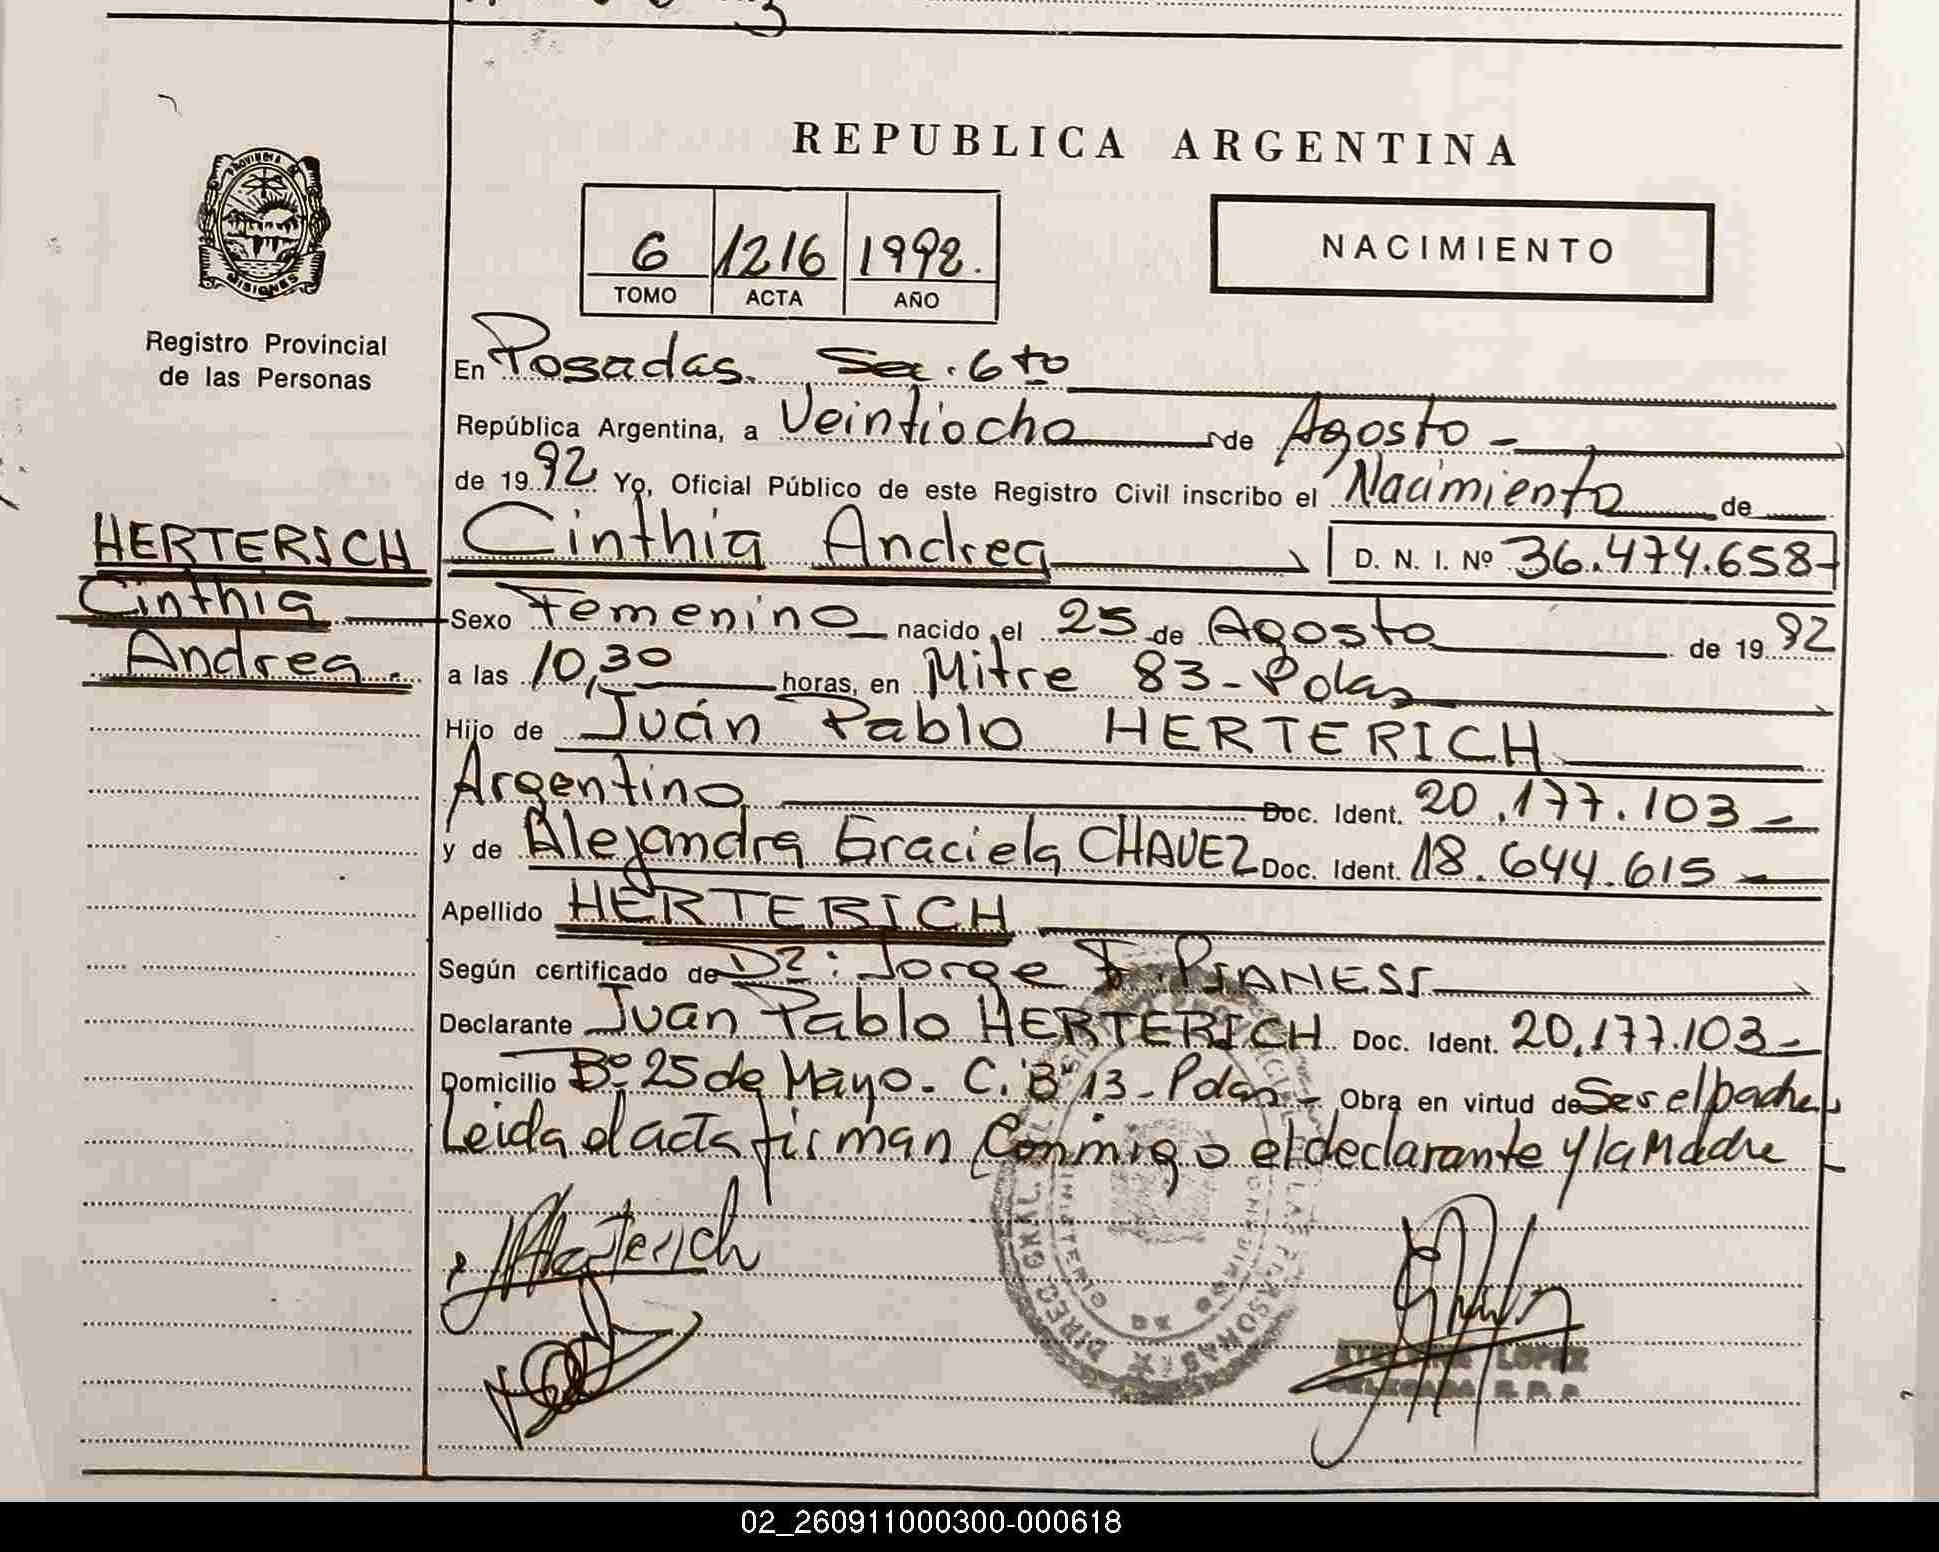 REPUBLICA ARGENTINA
PROVINCIA DE
MISIONES
Registro Provincial
de las Personas
6 1216 1992.
TOMO ACTA AÑO
NACIMIENTO
En Posadas. Sec. 6to
República Argentina, a Veintiocho de Agosto -
de 19 92 Yo, Oficial Público de este Registro Civil inscribo el Nacimiento de
HERTERICH
Cinthia
Andrea.
Cinthia Andrea D. N. I. Nº 36.474.658-
Sexo Femenino nacido el 25 de Agosto de 19 92
a las 10,30 horas, en Mitre 83 - Pdas
Hijo de Juan Pablo HERTERICH
Argentino Doc. Ident. 20.177.103 -
y de Alejandra Graciela CHAVEZ Doc. Ident. 18.644.615 -
Apellido HERTERICH
Según certificado de Dr: Jorge F. PIANESI
Declarante Juan Pablo HERTERICH Doc. Ident. 20.177.103 -
Domicilio Bº 25 de Mayo - C. "B" 13 - Pdas - Obra en virtud de Ser el padre
Leida el acta firman conmigo el declarante y la Madre
Herterich
LOPEZ
DELEGADA R. P. P.
02_260911000300-000618